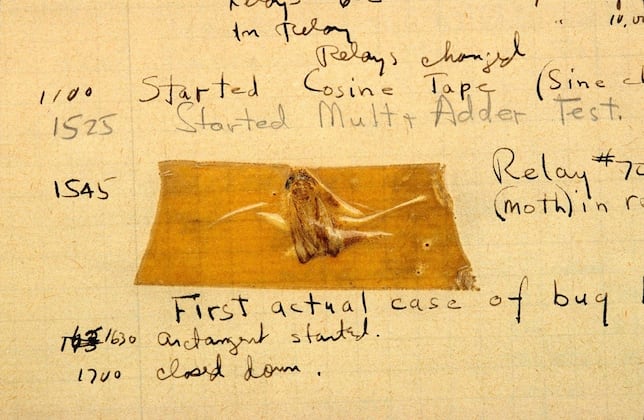 in Relay
Relays changed
1100 Started Cosine Tape (Sine c
1525 Started Mult+ Adder Test.
1545 Relay #70
(moth) in re
First actual case of bug b
1630 arctangent started.
1700 closed down.